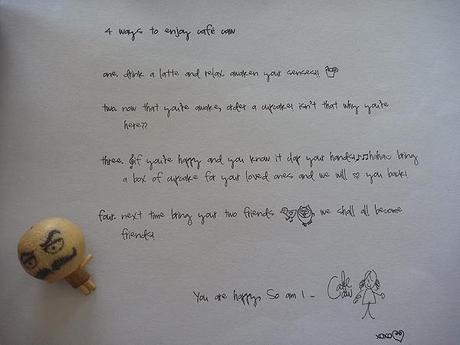 4 ways to enjoy café caw
one. drink a latte and relax. awaken your senses!!
two. now that you're awake, order a cupcake! isn't that why you're
here??
three. if you're happy and you know it clap your hands!♪♫ haha~ bring
a box of cupcake for your loved ones and we will ♡ you back!
four. next time bring your two friends we shall all become
friends!
You are happy, So am I ~
Cafe
Caw
xoxo